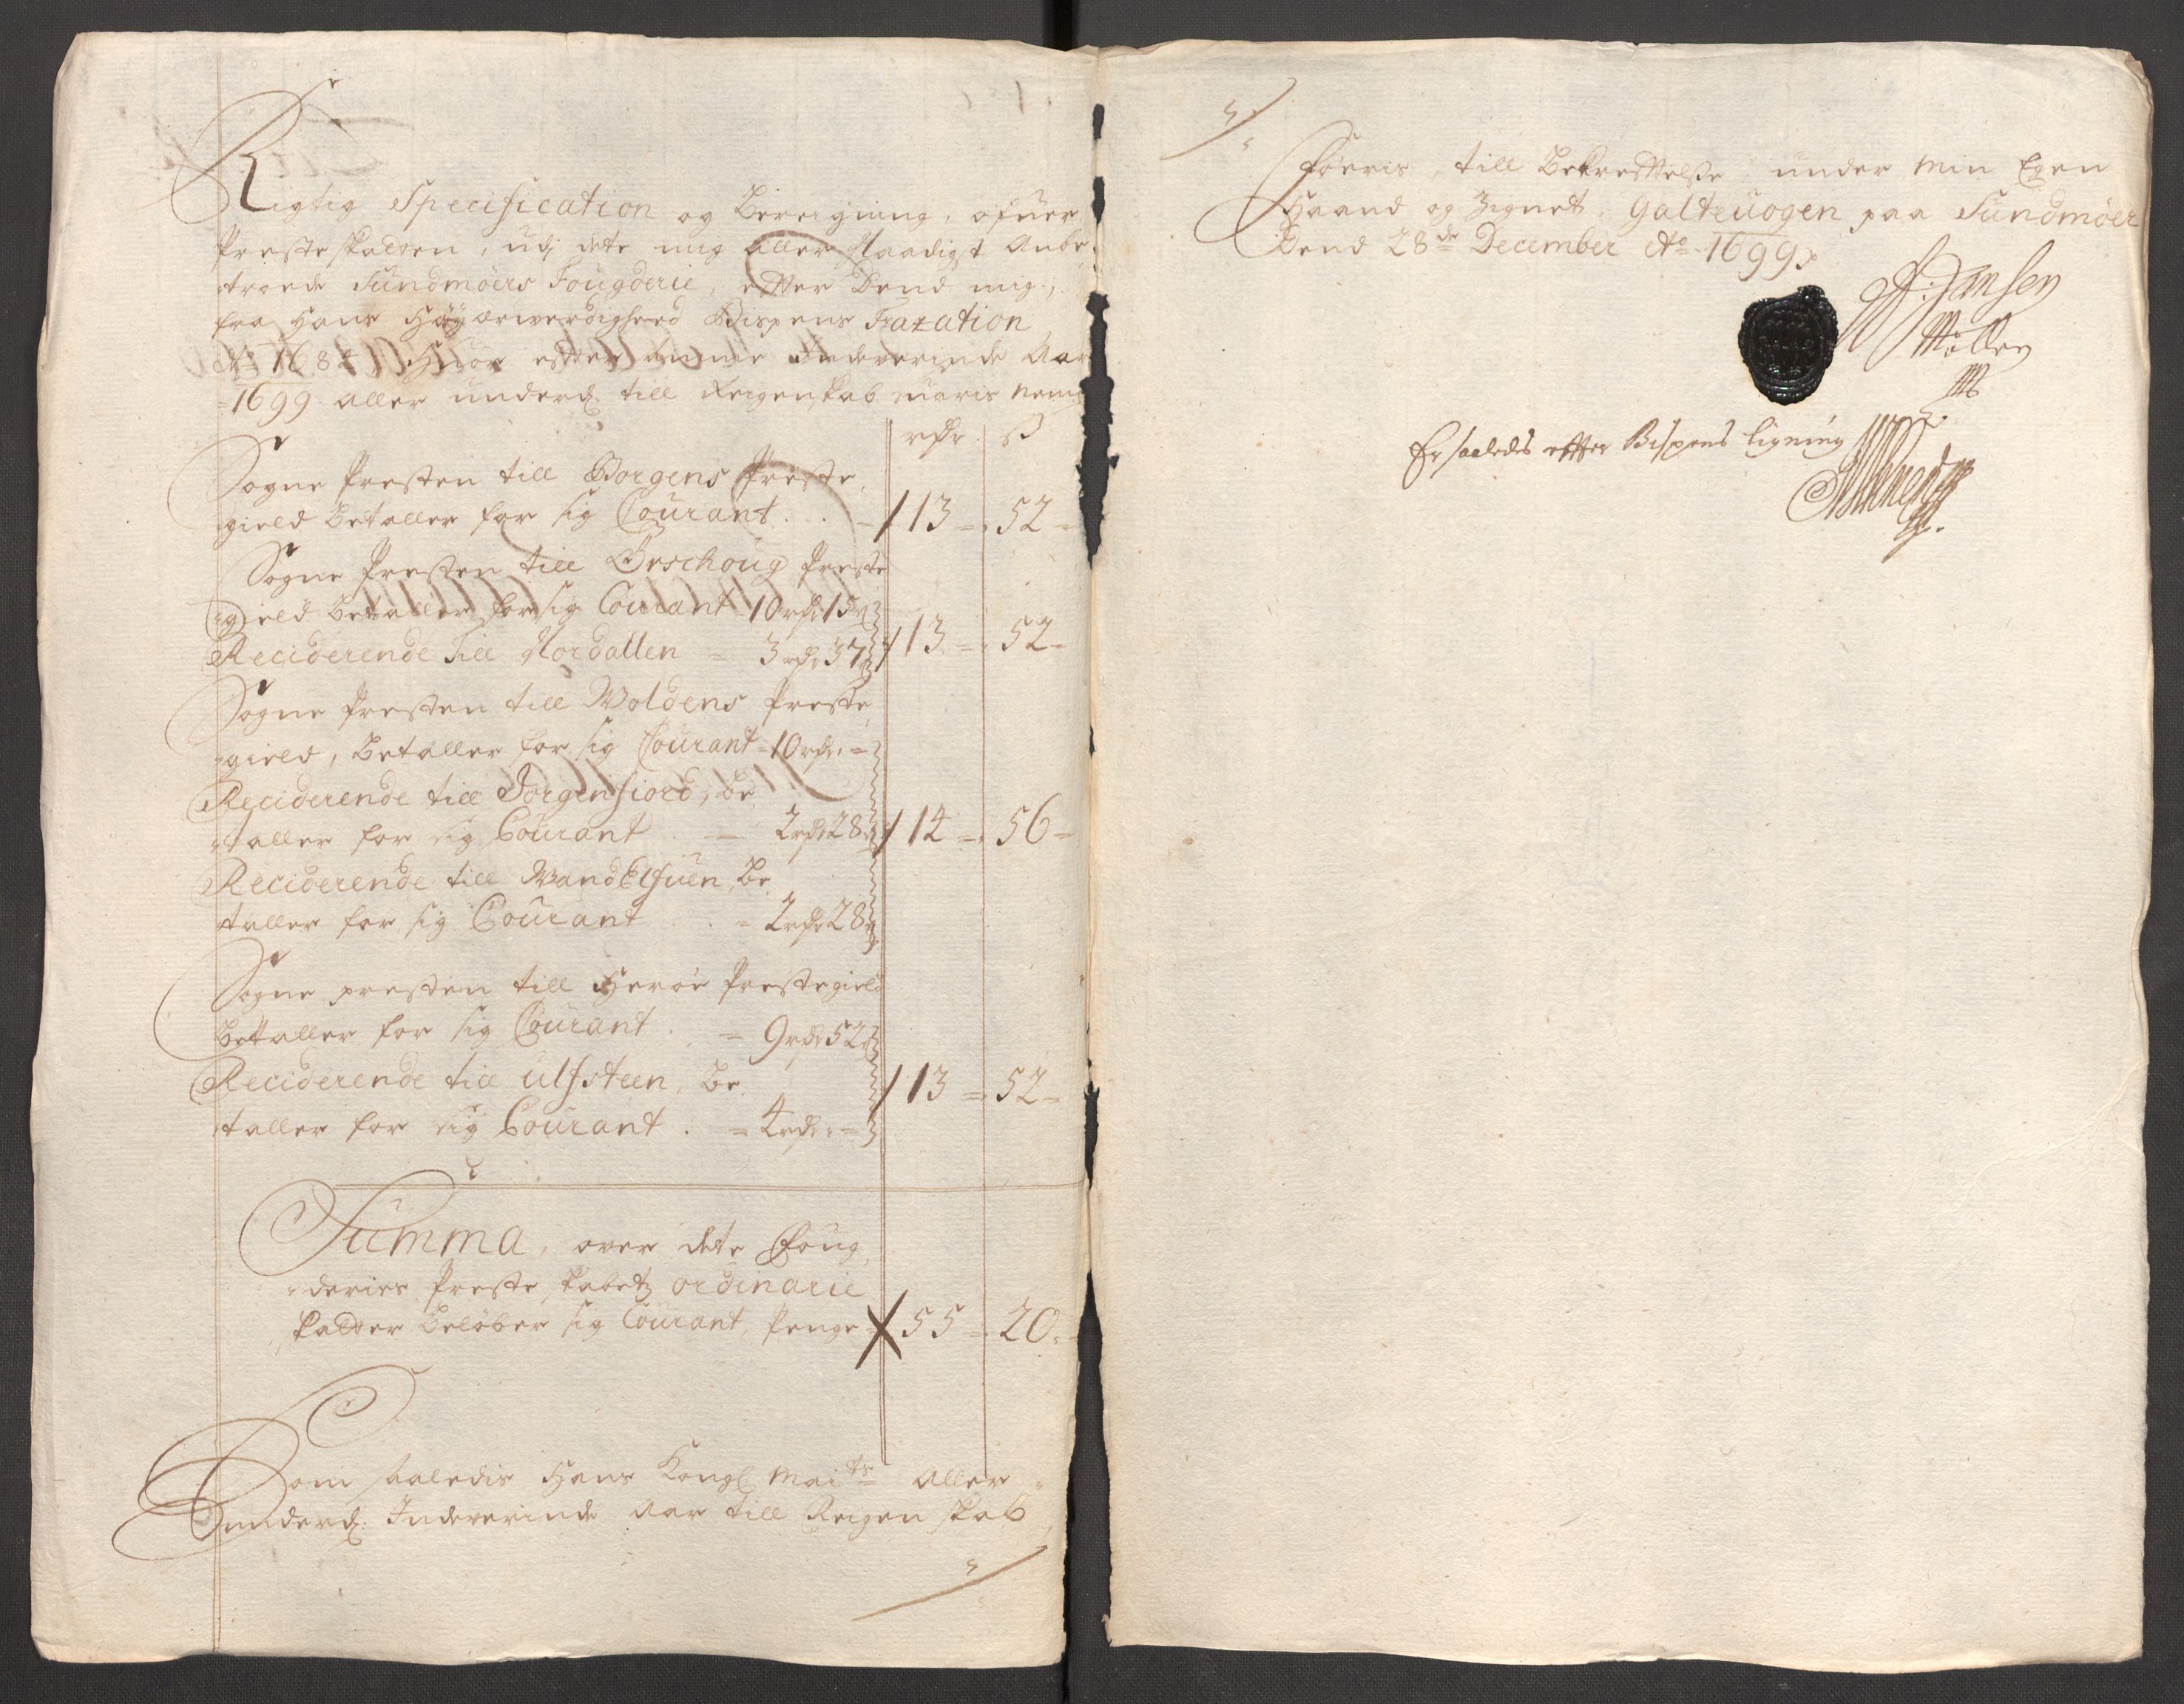 Rigtig Specification og Bereigning, ofuer
Presteskatten, udj dete mig aller Naadigst Anbe-
troede Sundmöers Fougderie, efter dend mig,
fra Hans Höyærwerdigheed Bispens Taxation
Ao 1684 Huor efter denne Indeverinde Aar
1699 aller underd. till Reigenskab
rdr ß
Sogne Presten till Borgens Preste
gield Betaller for sig Courant . . . 13 = 52 =
Sogne Presten till Örschoug Preste
gield Betaller for sig Courant 10 rdr 15 ß
Reciderende till Nordallen = 3 rdr 37 ß 13 = 52 =
Sogne Presten till Woldens Preste
gield, Betaller for sig Courant = 10 rdr =
Reciderende till Jörgensiord, be
taller for sig Courant = 2 rdr 28 ß 14 = 56 =
Reciderende till Wandelfuen, Be
taller for sig Courant = 2 rdr 28 ß
Sogne presten till Heröe Prestegield
Bettaller for sig Courant . = 9 rdr 52 ß
Reciderende till Ulfsteen, Be 13 = 52 =
taller for sig Courant . = 4 rdr =
Summa, over dete Foug
deries Preste skabetz ordinarie
skatter Belöber sig Courant, Penge 55 = 20 =
Som saaledis Hans Kongl Maits Aller
underd. Indeverinde aar till Reigenskab
föeris, till Bekreftelse under min Egen
Haand og Zignet, Galteuogen paa Sundmöer
Dend 28de December Ao 1699
Jansen
Möller
Er saaledes efter Bispens ligning